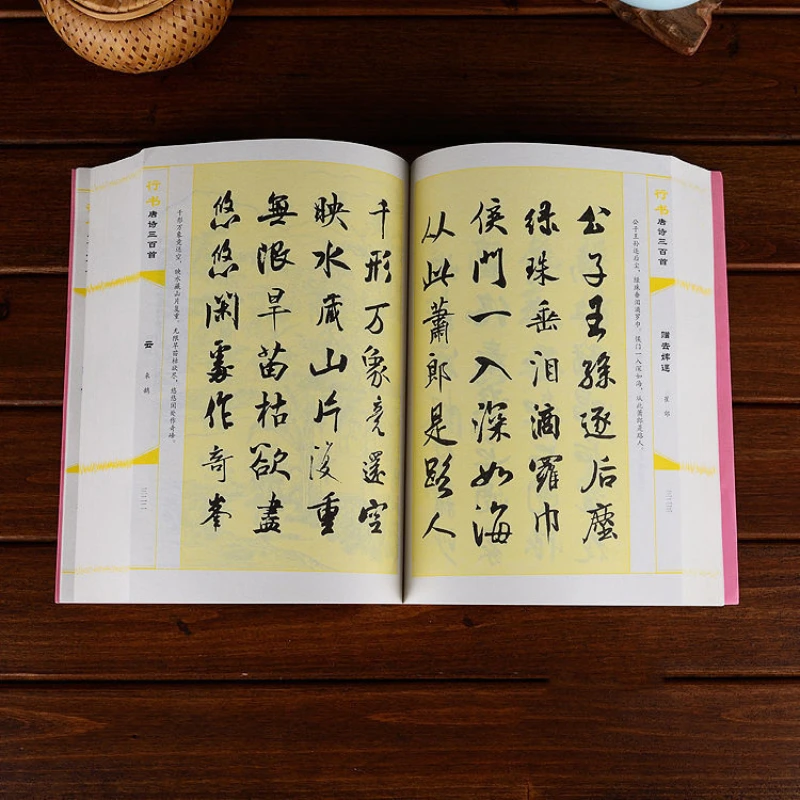 行书唐诗三百首
云
来鹄
千形万象竟还空，映水藏山片复重。无限旱苗枯欲尽，悠悠闲处作奇峰。
千形万象竟還空
映水藏山片復重
無限旱苗枯欲盡
悠悠闲處作奇峯
行书唐诗三百首
赠去婢
崔郊
公子王孙逐后尘，绿珠垂泪滴罗巾。侯门一入深如海，从此萧郎是路人。
公子王孫逐后塵
绿珠垂泪滴羅巾
侯門一入深如海
从此蕭郎是路人